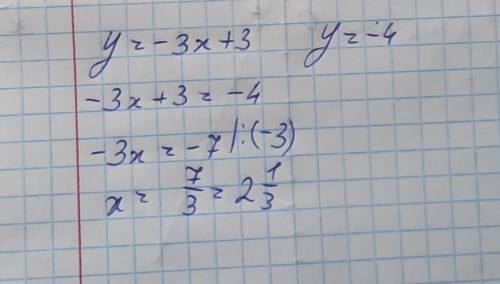 y = -3x + 3    y = -4
-3x + 3 = -4
-3x = -7 |:(-3)
x = 7/3 = 2 1/3